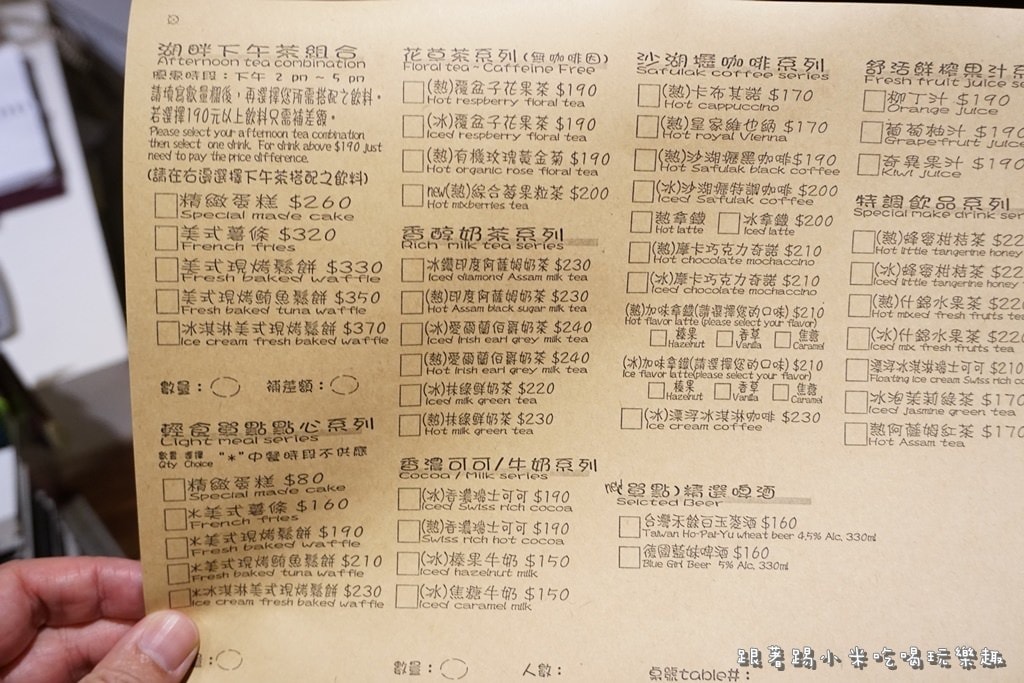 湖畔下午茶組合
Afternoon tea combination
優惠時段：下午 2 pm ~ 5 pm
請填寫數量欄後，再選擇您所需搭配之飲料。
若選擇190元以上飲料只需補差額。
Please select your afternoon tea combination
then select one drink. For drink above $190 just
need to pay the price difference.
(請在右邊選擇下午茶搭配之飲料)
精緻蛋糕 $260
Special made cake
美式薯條 $320
French fries
美式現烤鬆餅 $330
Fresh baked waffle
美式現烤鮪魚鬆餅 $350
Fresh baked tuna waffle
冰淇淋美式現烤鬆餅 $370
Ice cream fresh baked waffle
數量： 補差額：
輕食單點點心系列
Light meal series
數量 選擇 "*"中餐時段不供應
Qty Choice
精緻蛋糕 $80
Special made cake
*美式薯條 $160
French fries
*美式現烤鬆餅 $190
Fresh baked waffle
*美式現烤鮪魚鬆餅 $210
Fresh baked tuna waffle
*冰淇淋美式現烤鬆餅 $230
Ice cream fresh baked waffle
花草茶系列(無咖啡因)
Floral tea~Caffeine Free
(熱)覆盆子花果茶 $190
Hot respberry floral tea
(冰)覆盆子花果茶 $190
Iced respberry floral tea
(熱)有機玫瑰黃金菊 $190
Hot organic rose floral tea
new(熱)綜合莓果粒茶 $200
Hot mixberries tea
香醇奶茶系列
Rich milk tea series
冰鑽印度阿薩姆奶茶 $230
Iced diamond Assam milk tea
(熱)印度阿薩姆奶茶 $230
Hot Assam black sugar milk tea
(冰)愛爾蘭伯爵奶茶 $240
Iced Irish earl grey milk tea
(熱)愛爾蘭伯爵奶茶 $240
Hot Irish earl grey milk tea
(冰)抹綠鮮奶茶 $220
Iced milk green tea
(熱)抹綠鮮奶茶 $230
Hot milk green tea
香濃可可/牛奶系列
Cocoa / Milk series
(冰)香濃瑞士可可 $190
Iced Swiss rich cocoa
(熱)香濃瑞士可可 $190
Swiss rich hot cocoa
(冰)榛果牛奶 $150
Iced hazelnut milk
(冰)焦糖牛奶 $150
Iced caramel milk
數量：
沙湖壢咖啡系列
Safulak coffee series
(熱)卡布其諾 $170
Hot cappuccino
(熱)皇家維也納 $170
Hot royal Vienna
(熱)沙湖壢黑咖啡$190
Hot Safulak black coffee
(冰)沙湖壢特調咖啡 $200
Iced Safulak coffee
熱拿鐵 冰拿鐵 $200
Hot latte Iced latte
(熱)摩卡巧克力奇諾 $210
Hot chocolate mochaccino
(冰)摩卡巧克力奇諾 $210
Iced chocolate mochaccino
(熱)加味拿鐵(請選擇您的口味) $210
Hot flavor latte(please select your flavor)
榛果 香草 焦糖
Hazelnut Vanilla Caramel
(冰)加味拿鐵(請選擇您的口味) $210
Ice flavor latte(please select your flavor)
榛果 香草 焦糖
Hazelnut Vanilla Caramel
(冰)漂浮冰淇淋咖啡 $230
Ice cream coffee
new(單點)精選啤酒
Selcted Beer
台灣禾餘白玉麥酒 $160
Taiwan Ho-Pai-Yu wheat beer 4.5% Alc. 330ml
德國藍妹啤酒 $160
Blue Girl Beer 5% Alc. 330ml
人數： 桌號table#：
舒活鮮榨果汁系
Fresh fruit juice se
柳丁汁 $190
Orange juice
葡萄柚汁 $190
Grapefruit juice
奇異果汁 $190
Kiwi juice
特調飲品系列
Special make drink ser
(熱)蜂蜜柑桔茶 $22
Hot little tangerine honey
(冰)蜂蜜柑桔茶 $22
Iced little tangerine honey
(熱)什錦水果茶 $22
Hot mixed fresh fruits tea
(冰)什錦水果茶 $22
Iced mix fresh fruits tea
漂浮冰淇淋瑞士可可 $210
Floating ice cream Swiss rich co
冰泡茉莉綠茶 $170
Iced jasmine green tea
熱阿薩姆紅茶 $170
Hot Assam tea
跟著踢小米吃喝玩樂趣